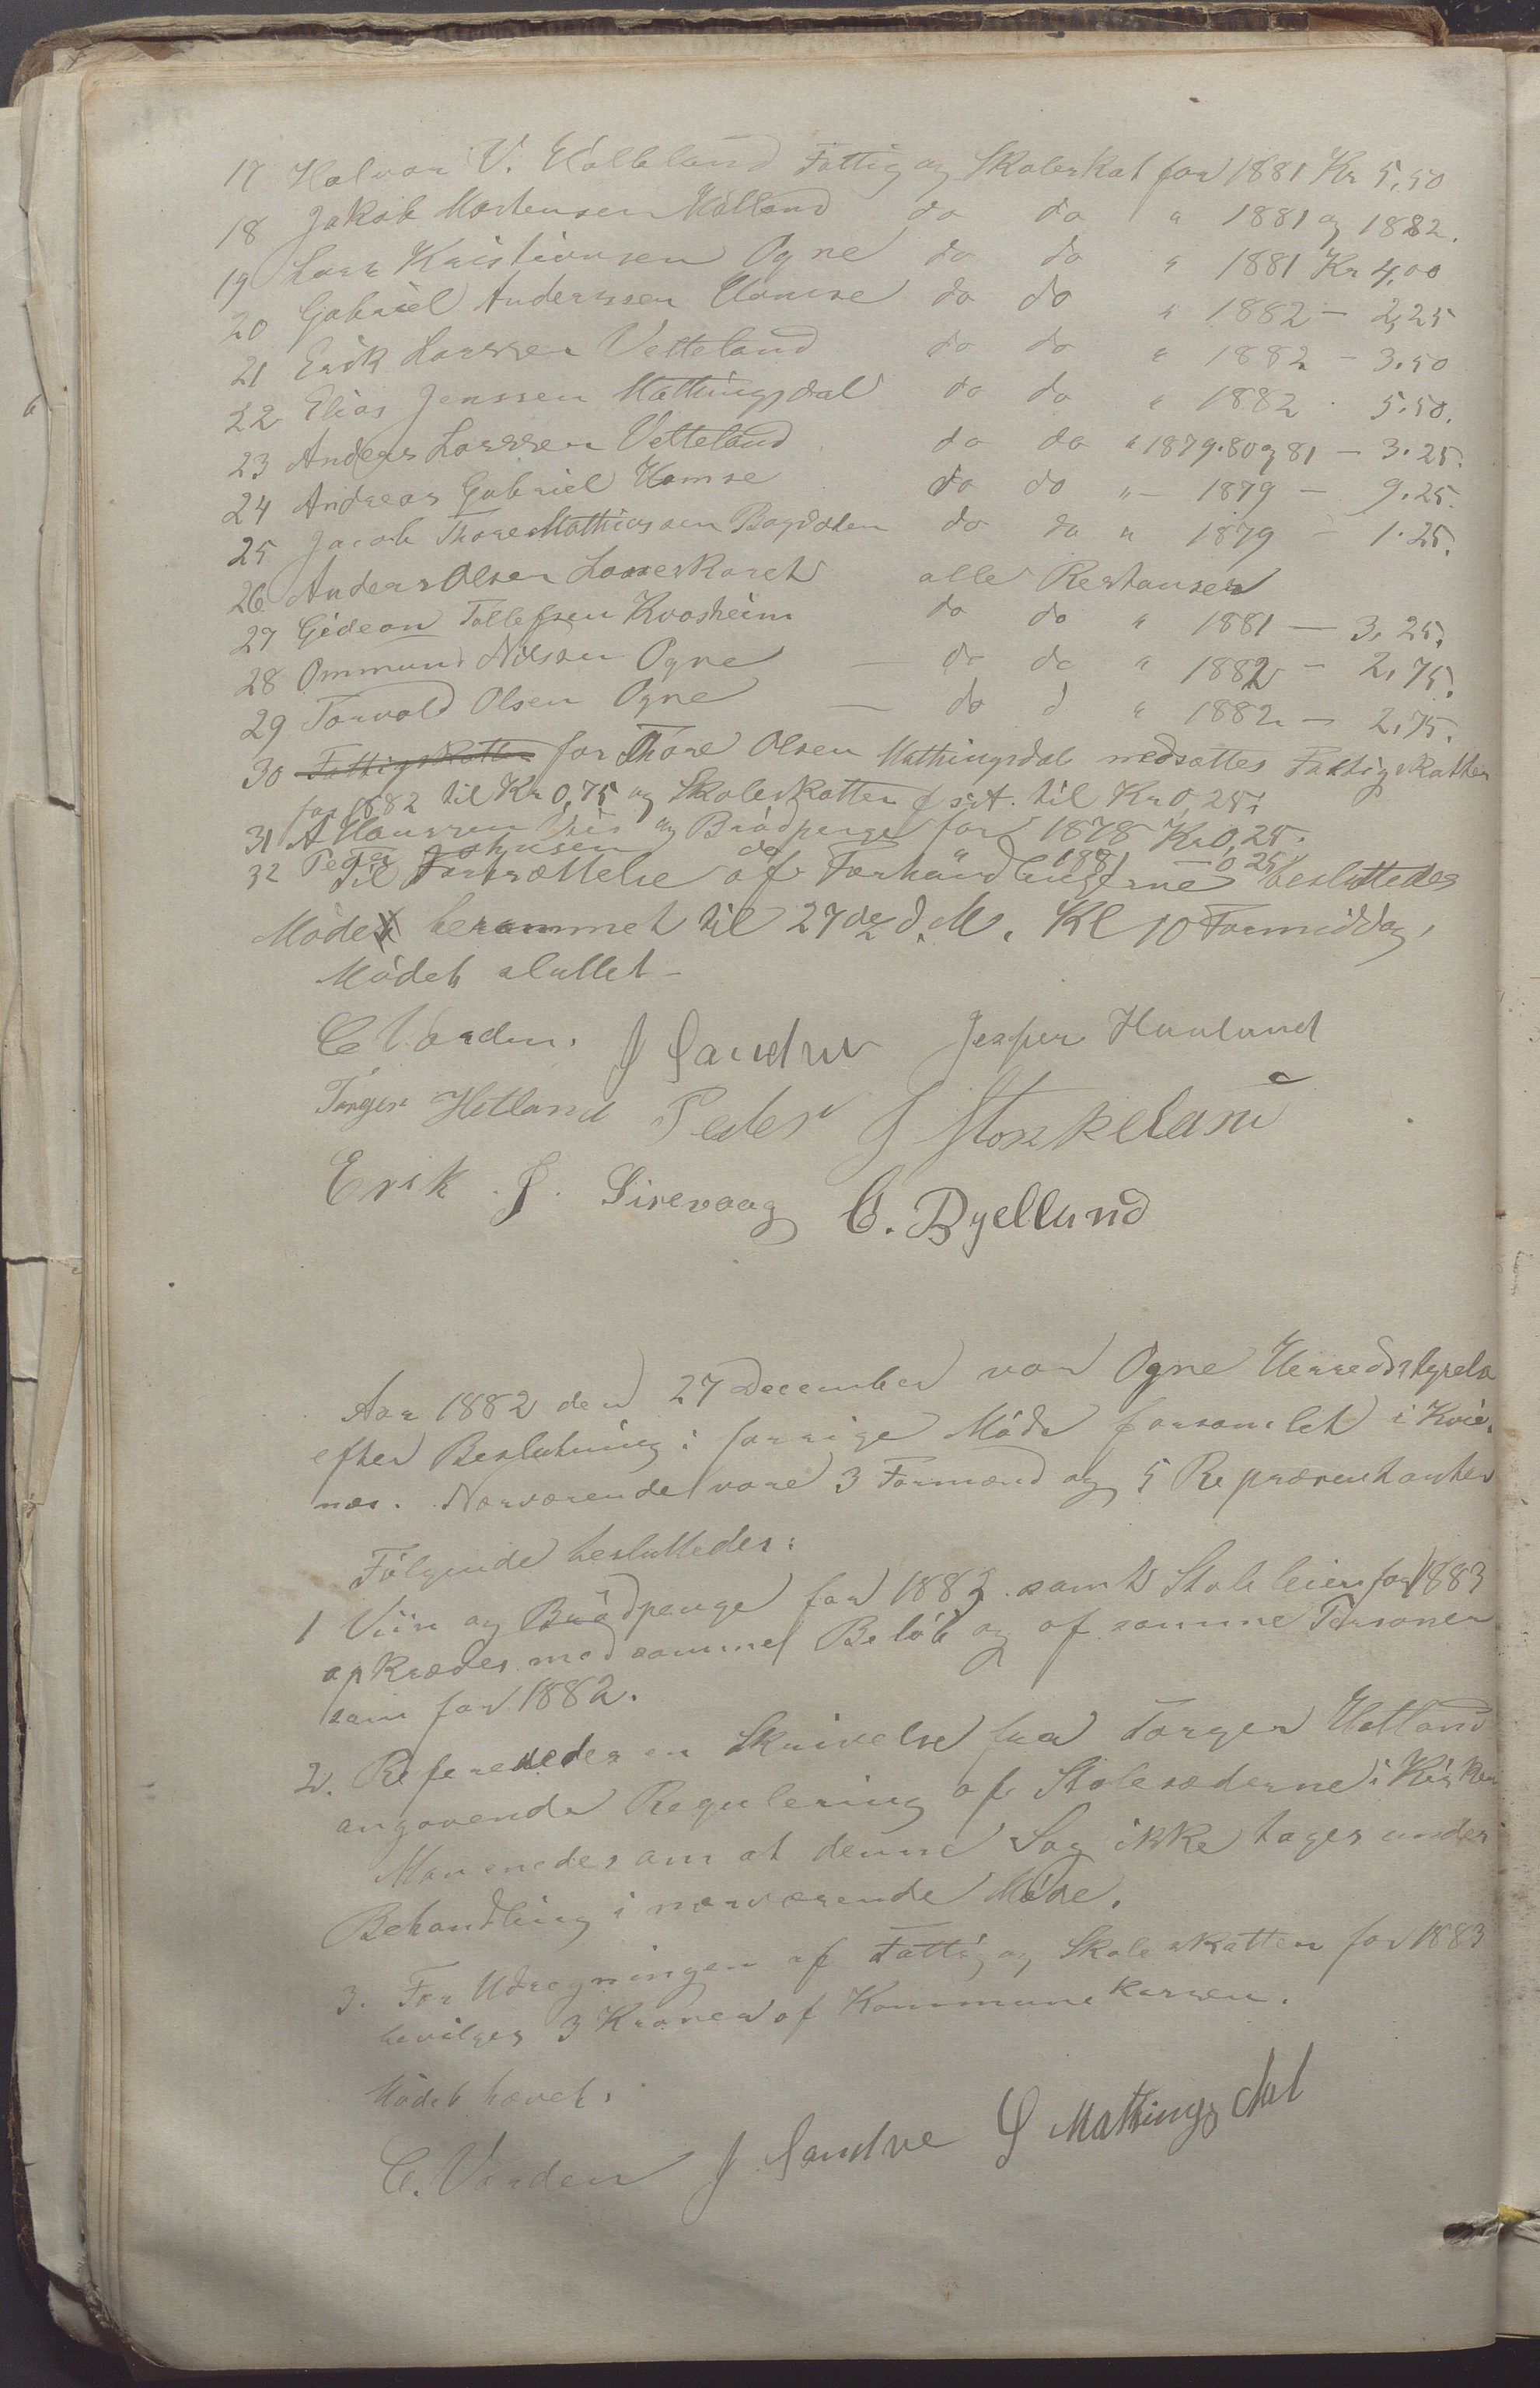 17 Halvor V. Hølleland Fattig og Skoleskat for 1881 Kr 5,50
18 Jakob Mortensen Hølland do do " 1881 og 1882.
19 Lars Kristiansen Ogne do do " 1881 Kr 4,00
20 Gabriel Anderssen Hamse do do " 1882 - 2,25
21 Erik Larssen Vetteland do do " 1882 - 3.50
22 Elias Jenssen Mattingsdal do do " 1882 . 5.50.
23 Anders Larssen Vetteland do do " 1879.80 og 81 - 3.25.
24 Andreas Gabriel Hamse do do " - 1879 - 9.25.
25 Jacob Thore Mathiassen do do " 1879 - 1.25.
26 Anders Olsen alle Restanser
27 Gideon Tollefsen Kvasheim do do " 1881 - 3,25.
28 Ommund Nilsen Ogne - do do " 1882 - 2,75.
29 Torvald Olsen Ogne - do d " 1882 - 2,75.
30 Fattigskatten for Thore Olsen Mattingsdal nedsattes Fattigskatten
for 1882 til Kr 0,75 og Skoleskatten til Kr 0,25.
31 A Hanssen Viin og Brødpenge for 1878 Kr 0,25.
32 Peder Johnsen do 1881 - 0,25
Til Fortsættelse af Forhandlingerne besluttedes
Møde berammet til 27de d.M. Kl 10 Formiddag,
Mødet sluttet -
C Varden. J Sandve Jesper Haaland
Torger Hetland Peder J Stokkeland
Erik J. Sirevaag C. Byelland
Aar 1882 den 27 December var Ogne Herredsstyrelse
efter Beslutning i forrige Møde forsamlet i Kvie-
næs. Nærværende vare 3 Formænd og 5 Repræsentanter
Følgende besluttedes:
1 Viin og Brødpenge for 1882 samt Stoleleien for 1883
opkræves med samme Beløb og af samme Personer
som for 1882.
2. Refereredes en Skrivelse fra Torger Hetland
angaaende Regulering af Stolesæderne i Kirken
Man enedes om at denne Sag ikke tages under
Behandling i nærværende Møde.
3. For Udregningen af Fattig og Skoleskatten for 1883
bevilges 3 Kroner af Kommunekassen.
Mødet hævet.
C. Varden J Sandve S Mattingsdal